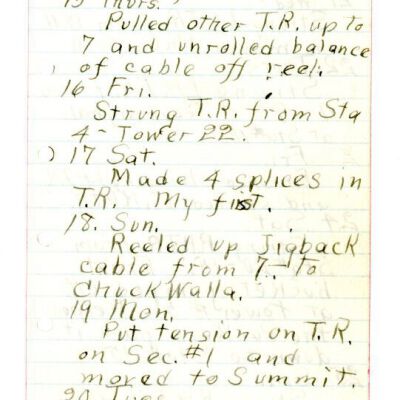 15 Thurs.
Pulled other T.R. up to
7 and unrolled balance
of cable off reel.
16 Fri.
Strung T.R. from Sta
4 - Tower 22.
17 Sat.
Made 4 splices in
T.R. My first.
18. Sun.
Reeled up Jigback
cable from 7- To
ChuckWalla.
19 Mon.
Put tension on T.R.
on Sec. #1 and
moved to Summit.
20 Tues